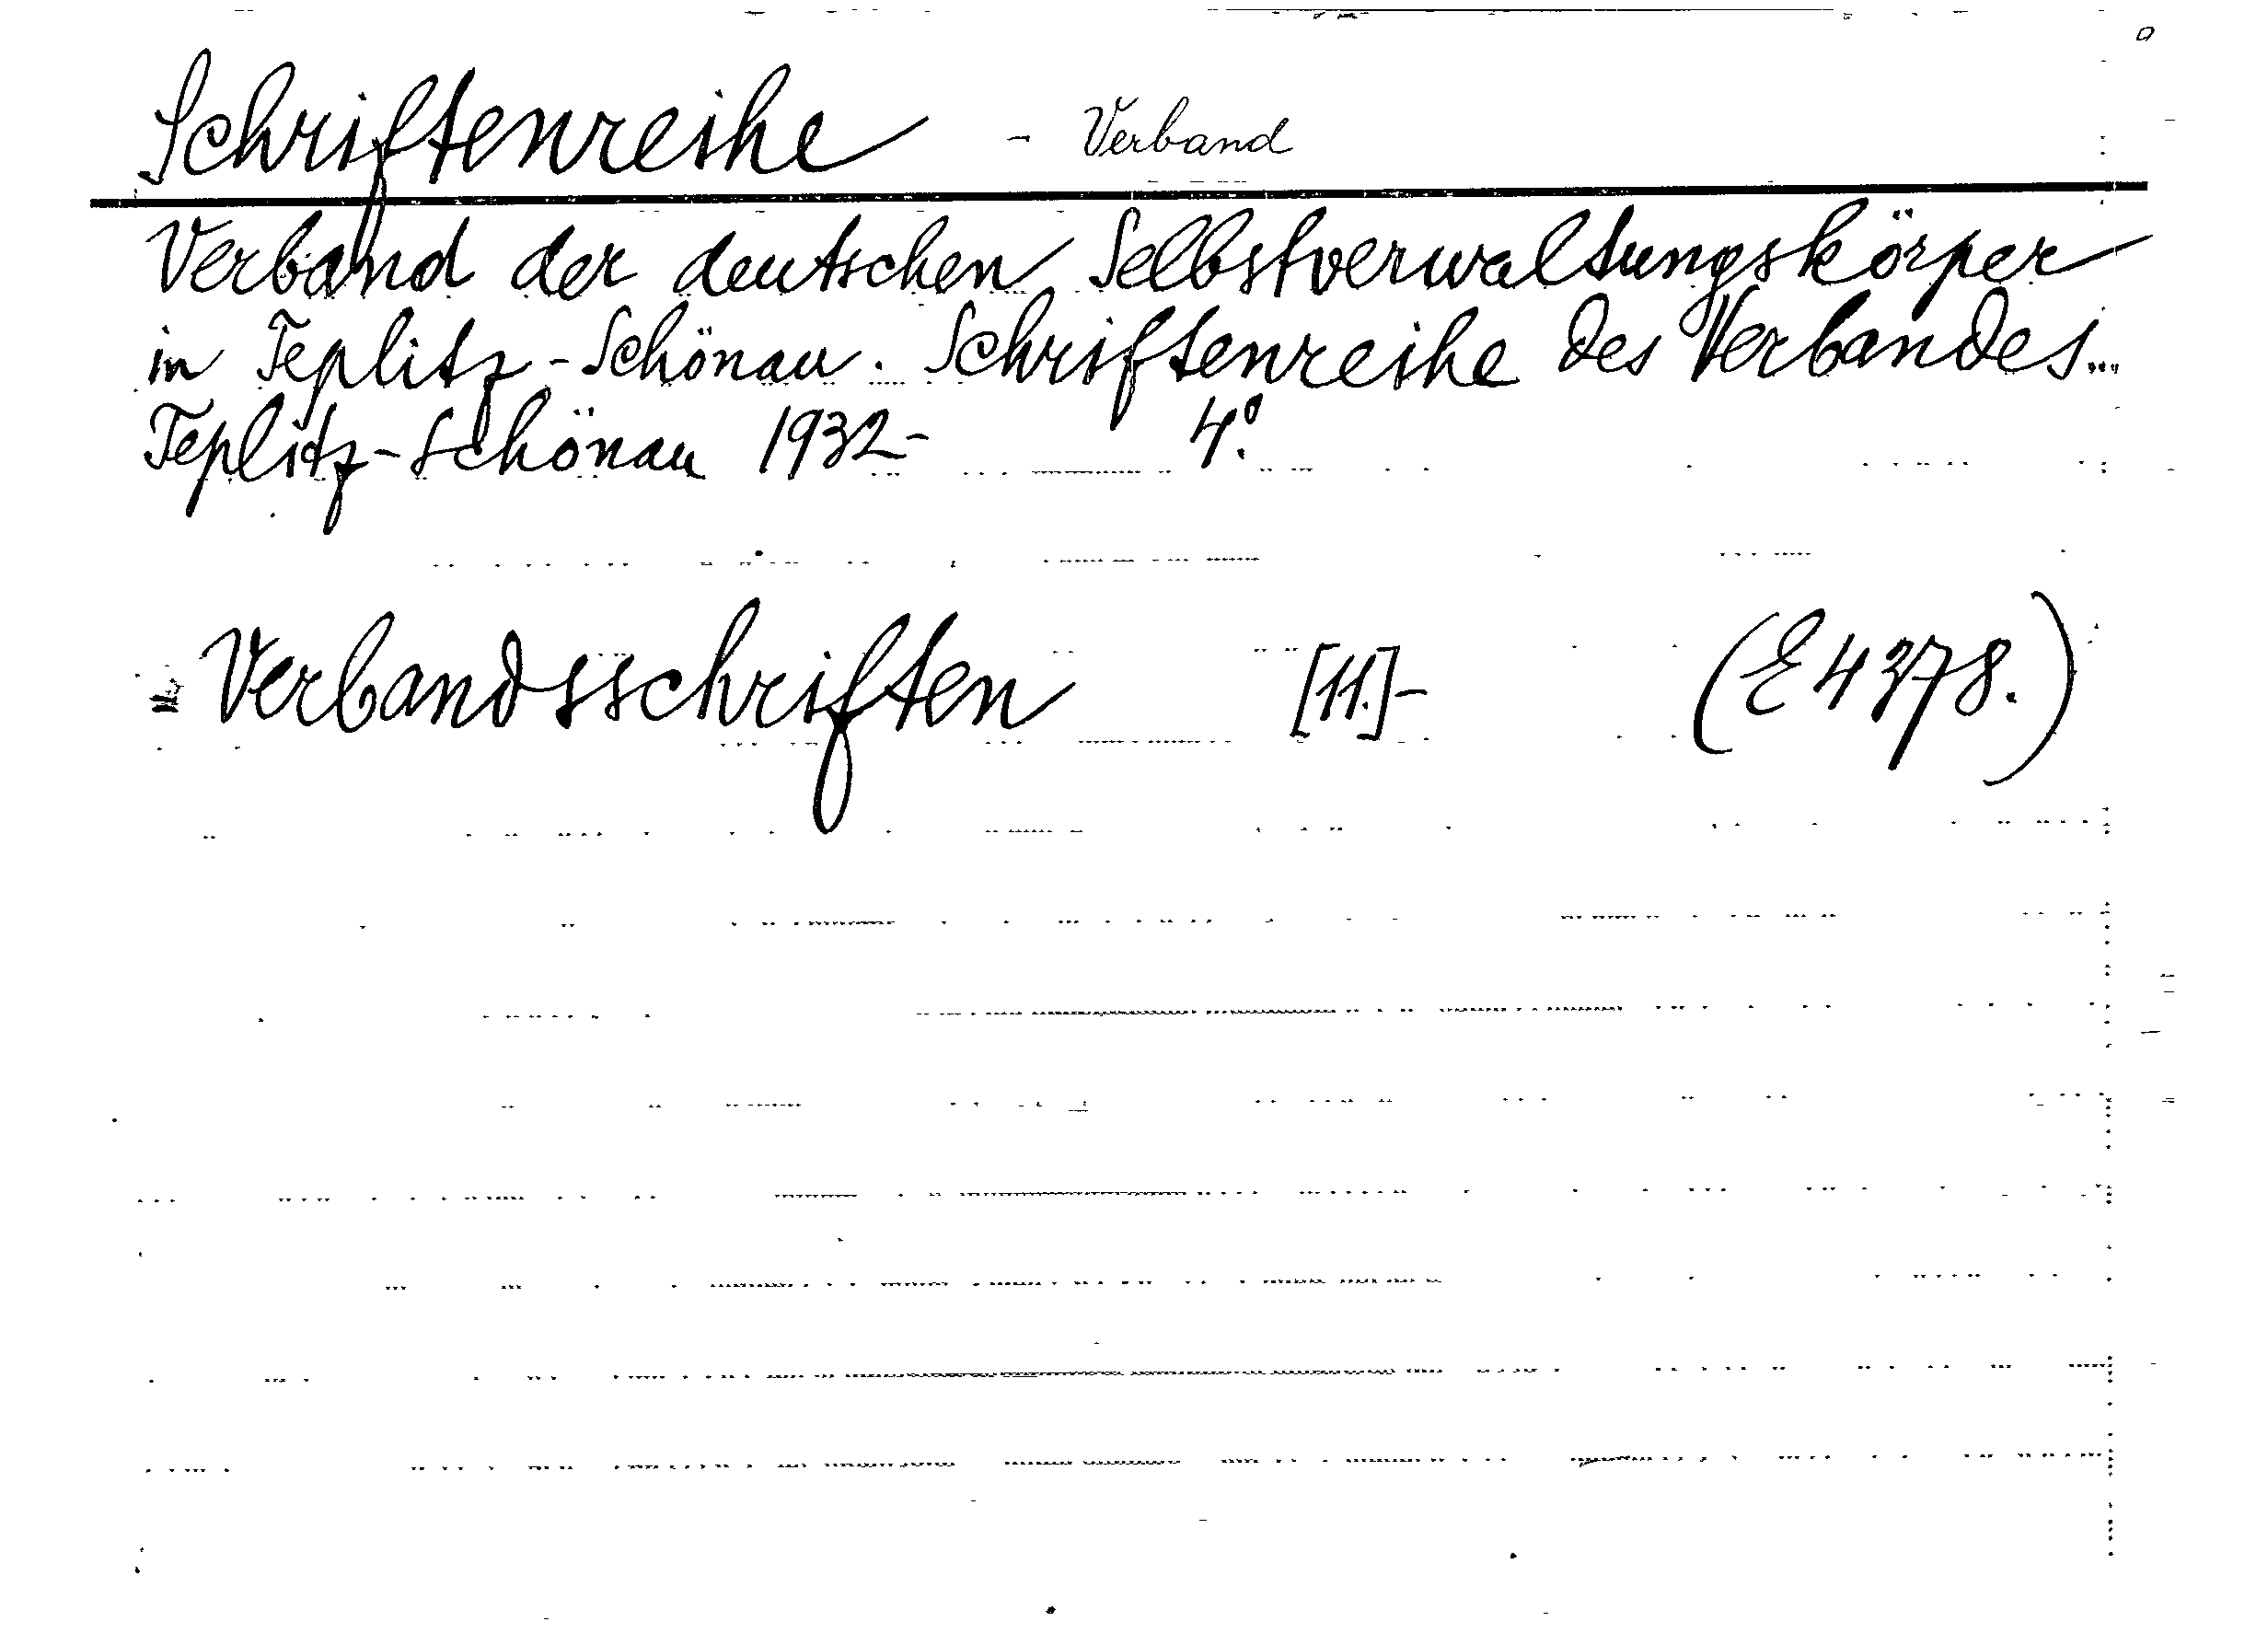 Schriftenreihe - Verband
Verband der deutschen Selbstverwaltungskörper
in Teplitz-Schönau. Schriftenreihe des Verbandes...
Teplitz-Schönau 1932- 4°.
Verbandsschriften [11.]- (E 4378.)